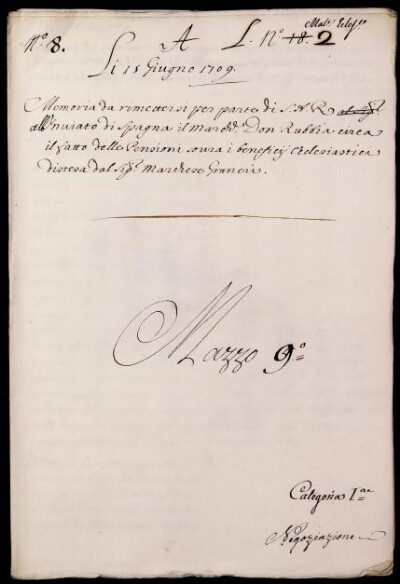 Mat. Ecly.
N.o 8. A L. N.o 18. 2
Li 15 Giugno 1709.
Memoria da rimettersi per parte di S.A.R.
all'Inviato di Spagna il March. Don Rubbia circa
il fatto delle Pensioni soura i beneficij Eclesiastici
distesa dal Sig. Marchese Graneri.
Mazzo 9.o
Categoria I.ae
Negoziazione